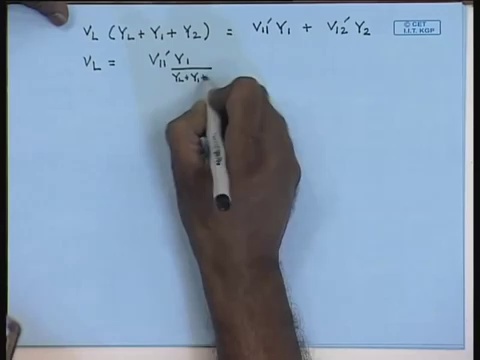 V_L (Y_L + Y_1 + Y_2) = V_11' Y_1 + V_12' Y_2
© CET
I.I.T. KGP
V_L = V_11' Y_1 / Y_L + Y_1 +